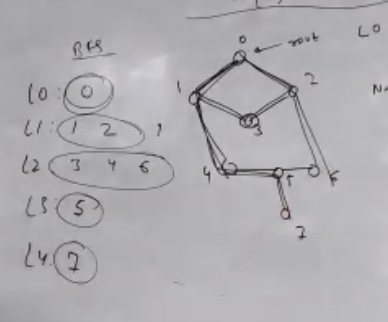 BFS
L0: 0
L1: 1 2 ,
L2 3 4 6
L3 5
L4 7
0
root
L0
1
2
3
4
5
6
7